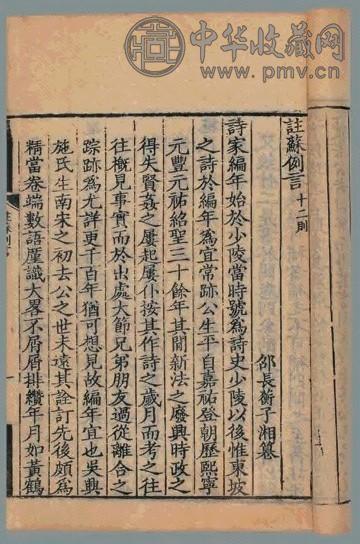 中华收藏网
www.pmv.cn
註蘇例言 十二則
邵長蘅子湘纂
詩家編年始於少陵當時號為詩史少陵以後惟東坡
之詩於編年為宜常跡公生平自嘉祐登朝歷熙寧
元豐元祐紹聖三十餘年其間新法之廢興時政之
得失賢姦之屢起屢仆按其作詩之歲月而考之往
往槪見事實而於出處大節兄弟朋友過從離合之
踪跡為尤詳更千百年猶可想見故編年宜也吳興
施氏生南宋之初去公之世未遠其詮訂先後頗為
精當卷端數語厪識大畧不屑屑排纘年月如黃鶴